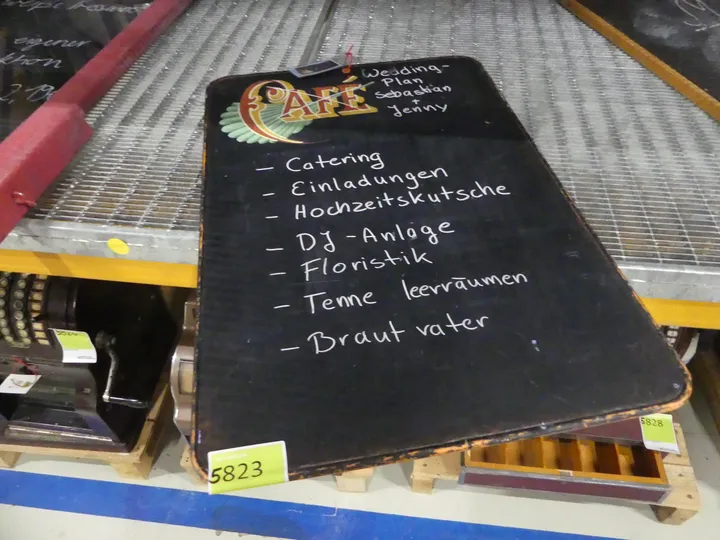 CAFÉ
Wedding-
Plan
Sebastian
+
Jenny
- Catering
- Einladungen
- Hochzeitskutsche
- DJ-Anlage
- Floristik
- Tenne leerräumen
- Braut vater
5823
5828
eigener